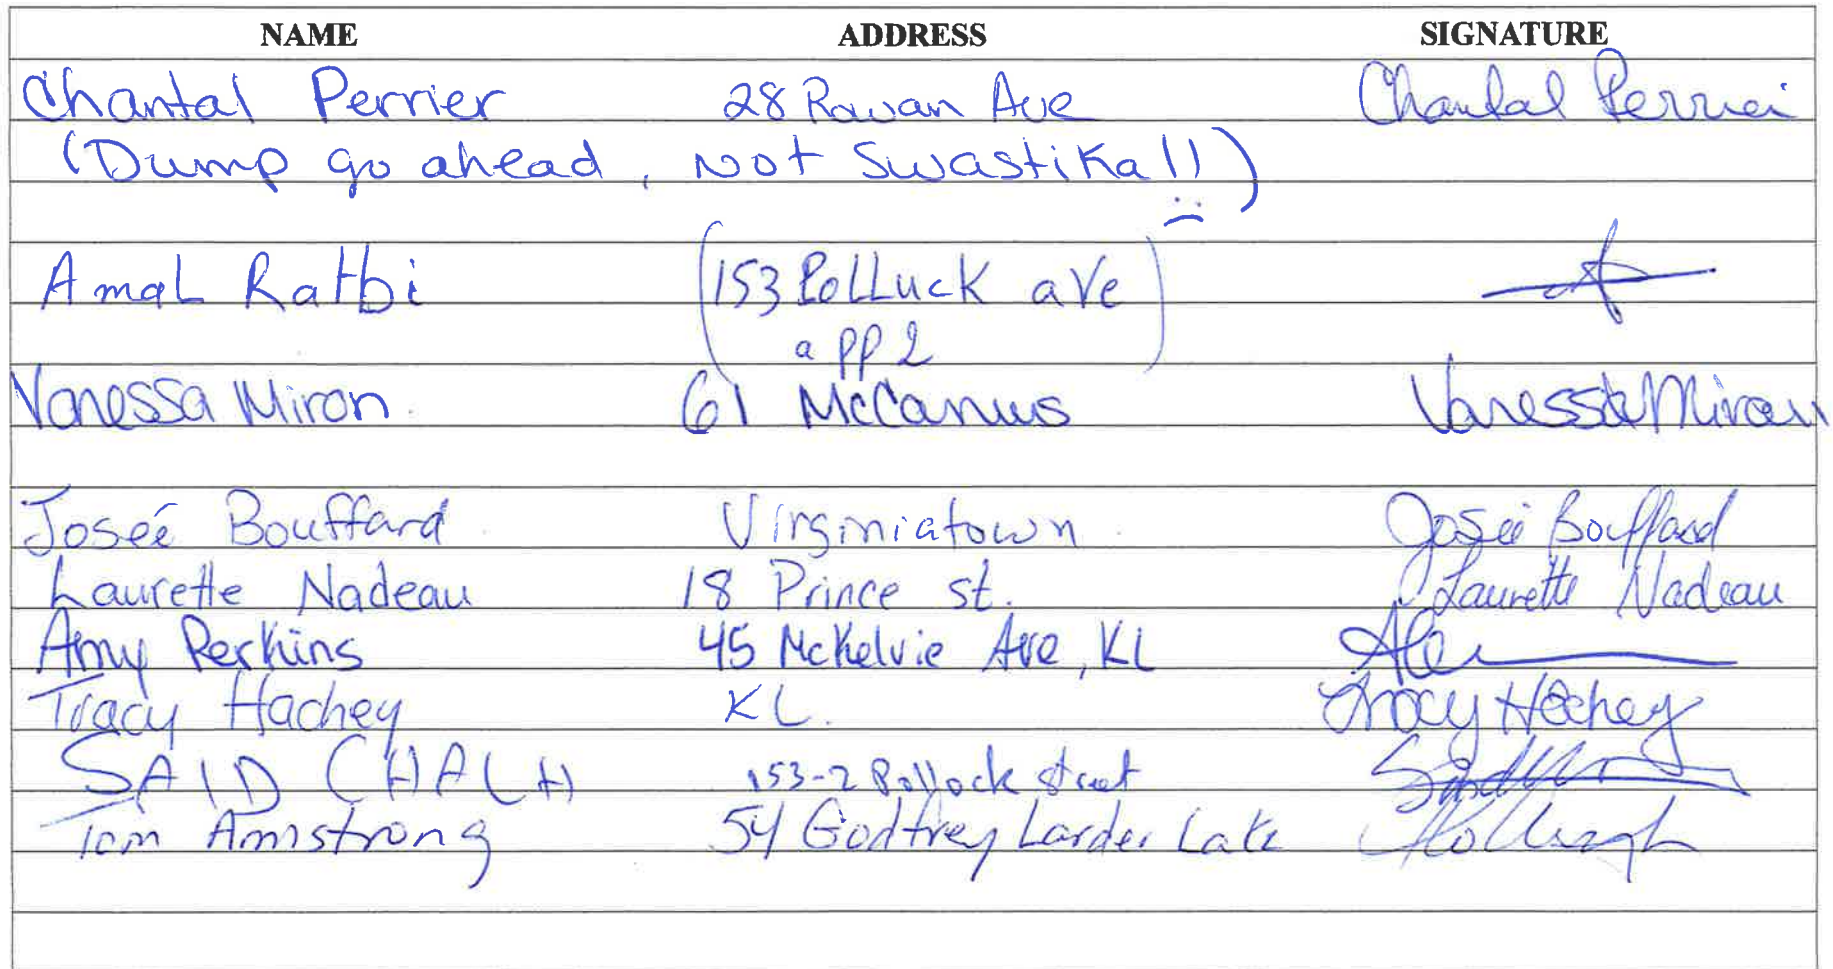 NAME ADDRESS SIGNATURE
Chantal Perrier 28 Rowan Ave Chantal Perrier
(Dump go ahead, Not Swastika!!)
:(
AmaL Ratbi (153 PolLuck aVe
app 2)
Vanessa Miron 61 McCamus Vanessa Miron
Joseé Bouffard Virginiatown Josée Bouffard
Laurette Nadeau 18 Prince st. Laurette Nadeau
Amy Perkins 45 McKelvie Ave, KL
Tracy Hachey KL. Tracy Hachey
SAID CHALH 153-2 Pollock street
Tom Armstrong 54 Godfrey Larder Lake